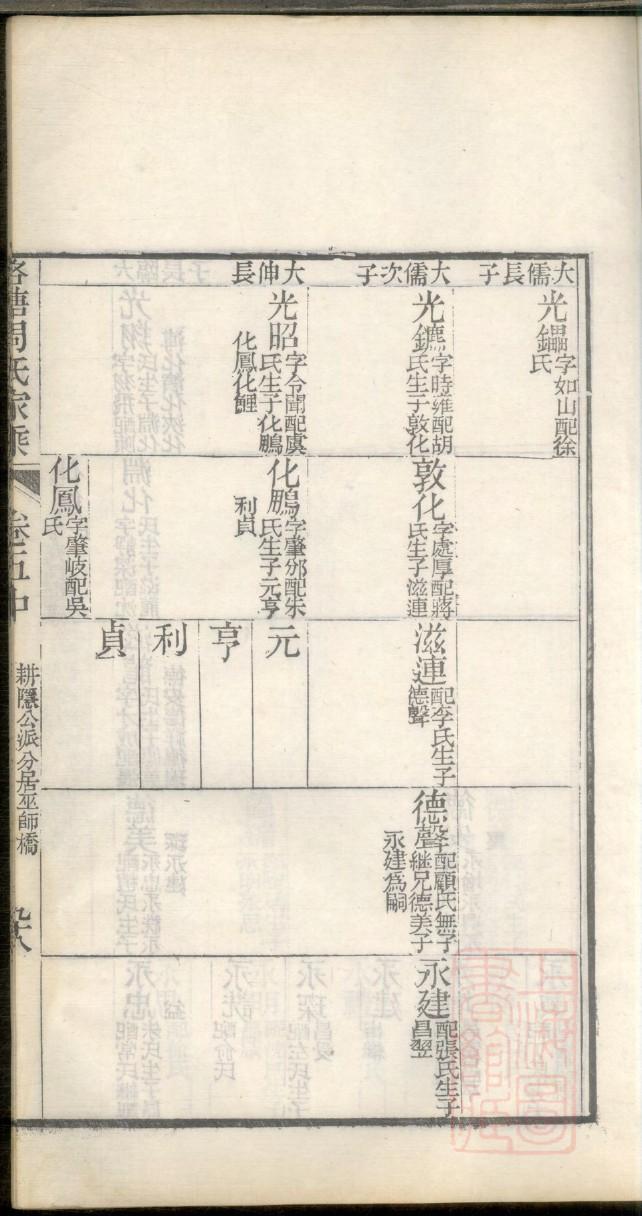 大儒長子
光鑘字如山配徐
氏
大儒次子
光鑣字時維配胡
氏生子敦化
敦化字處厚配蔣
氏生子滋連
滋連配李氏生子
德聲
德聲配顧氏無子
繼兄德美子
永建為嗣
永建配張氏生子
昌翌
大伸長
光昭字令聞配虞
氏生子化鵬
化鳳化鯉
化鵬字肇邠配朱
氏生子元亨
利貞
元
亨
利
貞
化鳳字肇岐配吳
氏
周氏家乘
卷五中
耕隱公派分居巫師橋